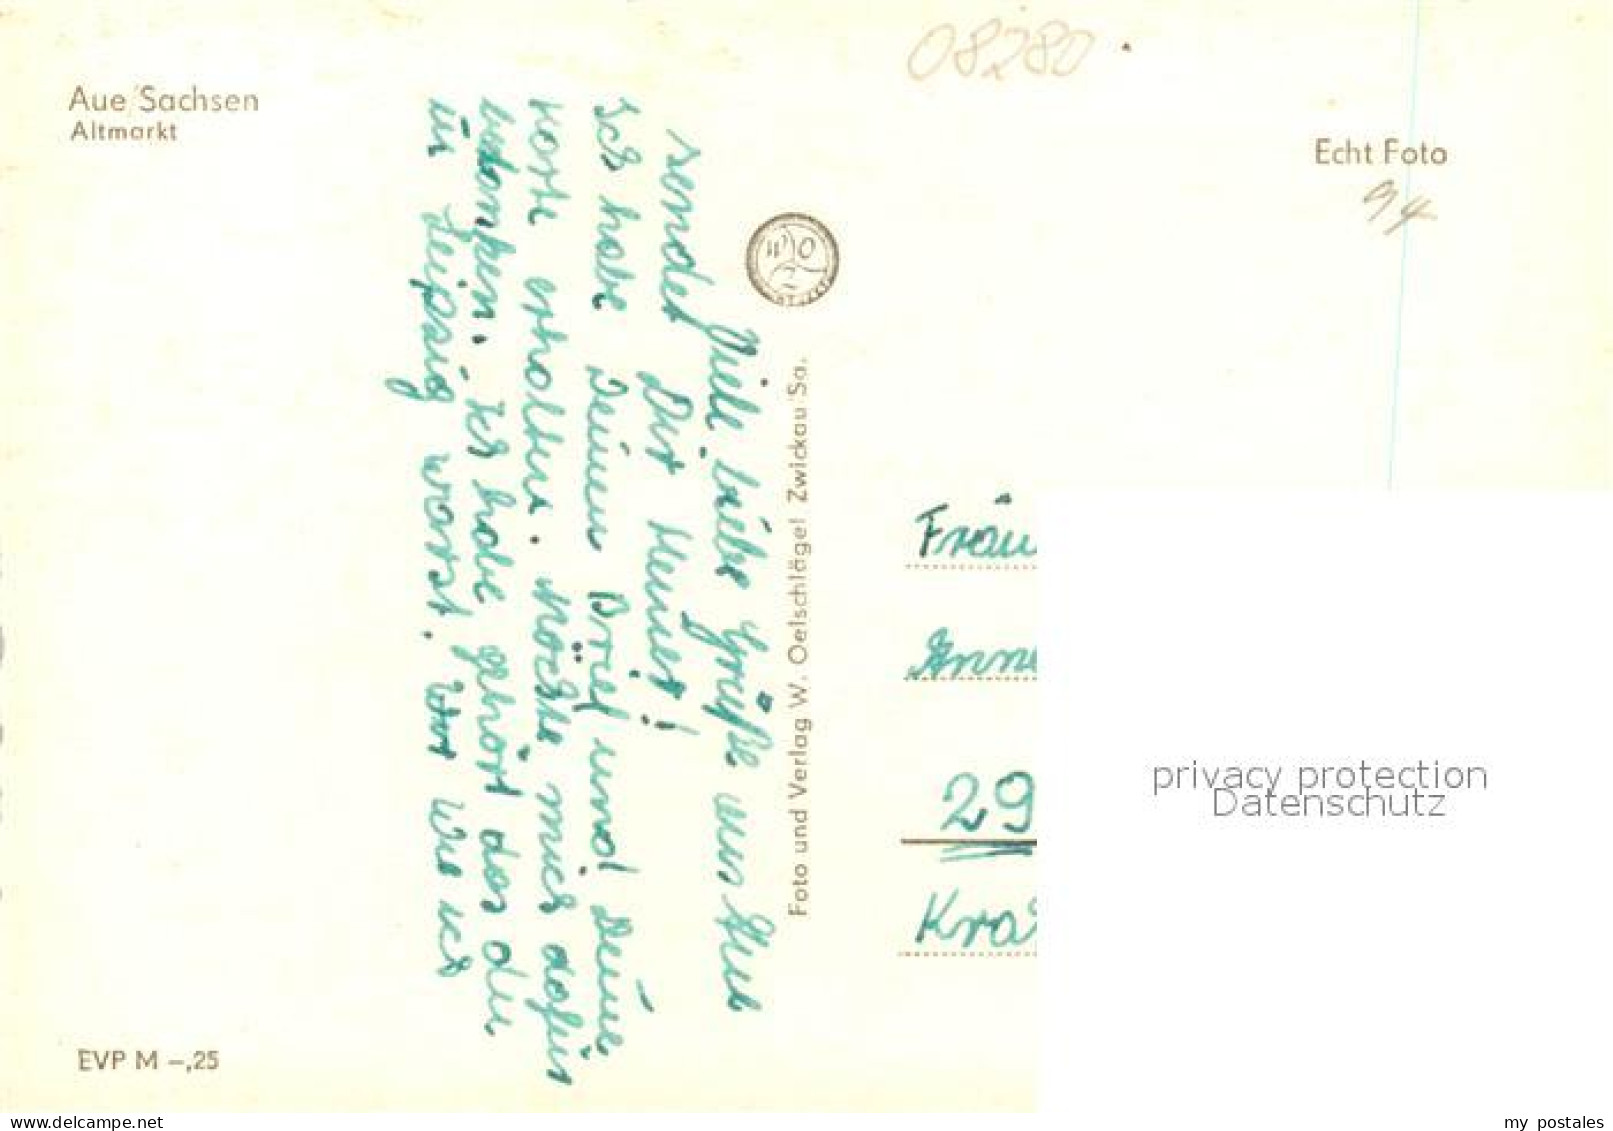 Aue/Sachsen
Altmarkt
08280
Echt Foto
94
Viele liebe Grüße aus Aue
sendet Dir Heiner!
Ich habe Deinen Brief und Deine
Karte erhalten. Möchte mich dafür
bedanken. Ich habe gehört das du
in Leipzig warst. War wie ich
Foto und Verlag W. Oelschlägel Zwickau Sa.
Fräu
Anne
29
Kra
privacy protection
Datenschutz
EVP M –,25
www.delcampe.net
my_postales